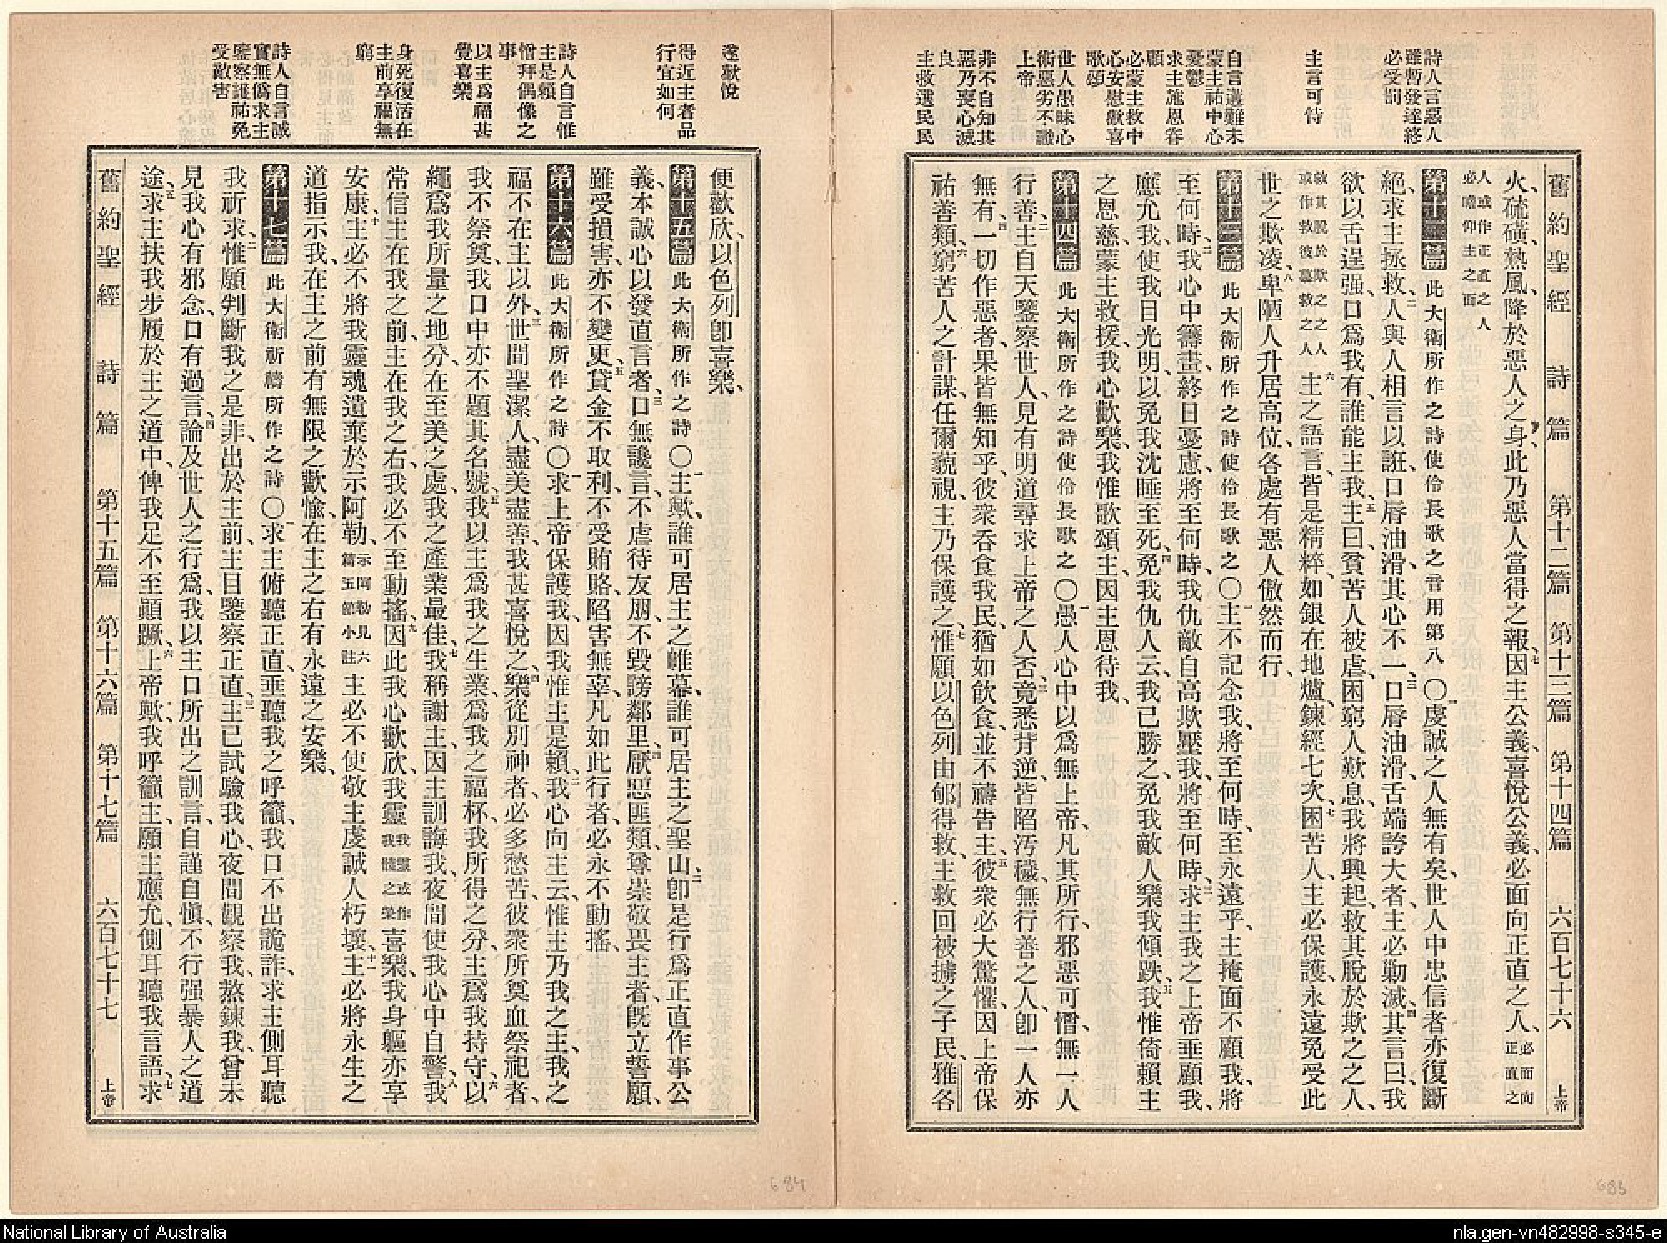 詩人言惡人
雖暫發達終
必受罰
主言可恃
自言遭難未
蒙主祐中心
憂鬱
求主施恩眷
顧
必蒙主救中
心安慰歡喜
歌頌
世人愚昧心
術惡劣不識
上帝
非不自知其
惡乃喪心滅
良
主救選民民
舊約聖經 詩篇 第十二篇 第十三篇 第十四篇 六百七十六 上帝
火、硫磺、熱風、降於惡人之身、此乃惡人當得之報、七因主公義、喜悅公義、必面向正直之人、必面向正直之
人或作正直之人
必瞻仰主之面
第十二篇 此大衛所作之詩使伶長歌之音用第八〇一虔誠之人無有矣、世人中忠信者亦復斷
絕、求主拯救、二人與人相言以誑、口唇油滑、其心不一、三口唇油滑、舌端誇大者、主必勦滅、四其言曰、我
欲以舌逞强、口爲我有、誰能主我、五主曰、貧苦人被虐、困窮人歎息、我將興起救其脫於欺之之人、
救其脫於欺之之人
或作救彼慕救之人
六主之語言、皆是精粹、如銀在地爐、鍊經七次、七困苦人主必保護、永遠免受此
世之欺凌、八卑陋人升居高位、各處有惡人傲然而行、
第十三篇 此大衛所作之詩使伶長歌之〇一主不記念我、將至何時、至永遠乎、主掩面不顧我、將
至何時、二我心中籌畫、終日憂慮、將至何時、我仇敵自高欺壓我、將至何時、三求主我之上帝垂顧我、
應允我、使我目光明、以免我沈睡至死、四免我仇人云、我已勝之、免我敵人樂我傾跌、五我惟倚賴主
之恩慈、蒙主救援、我心歡樂、我惟歌頌主、因主恩待我、
第十四篇 此大衛所作之詩使伶長歌之〇一愚人心中以爲無上帝、凡其所行、邪惡可憎、無一人
行善、二主自天鑒察世人、見有明道尋求上帝之人否、三竟悉背逆、皆陷汚穢、無行善之人、卽一人亦
無有、四一切作惡者、果皆無知乎、彼衆吞食我民、猶如飲食、並不禱告主、五彼衆必大驚懼、因上帝保
祐善類、六窮苦人之計謀、任爾藐視、主乃保護之、七惟願以色列由郇得救、主救回被擄之子民、雅各
遂歡悅
得近主者品
行宜如何
詩人自言惟
主是賴
憎拜偶像之
事
以主爲福甚
覺喜樂
身死復活在
主前享福無
窮
詩人自言誠
實無僞求主
鑒察護祐免
受敵害
便歡欣、以色列卽喜樂、
第十五篇 此大衛所作之詩〇一主歟、誰可居主之帷幕、誰可居主之聖山、二卽是行爲正直、作事公
義、本誠心以發直言者、三口無讒言、不虐待友朋、不毀謗鄰里、四厭惡匪類、尊崇敬畏主者、旣立誓願、
雖受損害、亦不變更、五貸金不取利、不受賄賂陷害無辜、凡如此行者、必永不動搖、
第十六篇 此大衛所作之詩〇一求上帝保護我、因我惟主是賴、二我心向主云、惟主乃我之主、我之
福不在主以外、三世間聖潔人、盡美盡善、我甚喜悅之、四樂從別神者、必多愁苦、彼衆所奠血祭祀者、
我不祭奠、我口中亦不題其名號、五我以主爲我之生業、爲我之福杯、我所得之分、主爲我持守、六以
繩爲我所量之地分、在至美之處、我之產業最佳、七我稱謝主、因主訓誨我、夜間使我心中自警、八我
常信主在我之前、主在我之右、我必不至動搖、九因此我心歡欣、我靈我靈或作我肢之榮喜樂、我身軀亦享
安康、十主必不將我靈魂遺棄於示阿勒、示阿勒見六篇五節小註主必不使敬主虔誠人朽壞、十一主必將永生之
道指示我、在主之前有無限之歡愉、在主之右有永遠之安樂、
第十七篇 此大衛祈禱所作之詩〇一求主俯聽正直、垂聽我之呼籲、我口不出詭詐、求主側耳聽
我祈求、二惟願判斷我之是非、出於主前、主目鑒察正直、三主已試驗我心、夜間觀察我、熬鍊我、曾未
見我心有邪念、口有過言、四論及世人之行爲、我以主口所出之訓言、自謹自愼、不行强暴人之道
途、五求主扶我步履於主之道中、俾我足不至顚蹶、六上帝歟、我呼籲主、願主應允、側耳聽我言語、七求
舊約聖經 詩篇 第十五篇 第十六篇 第十七篇 六百七十七 上帝
684
683
National Library of Australia
nla.gen-vn482998-s345-e